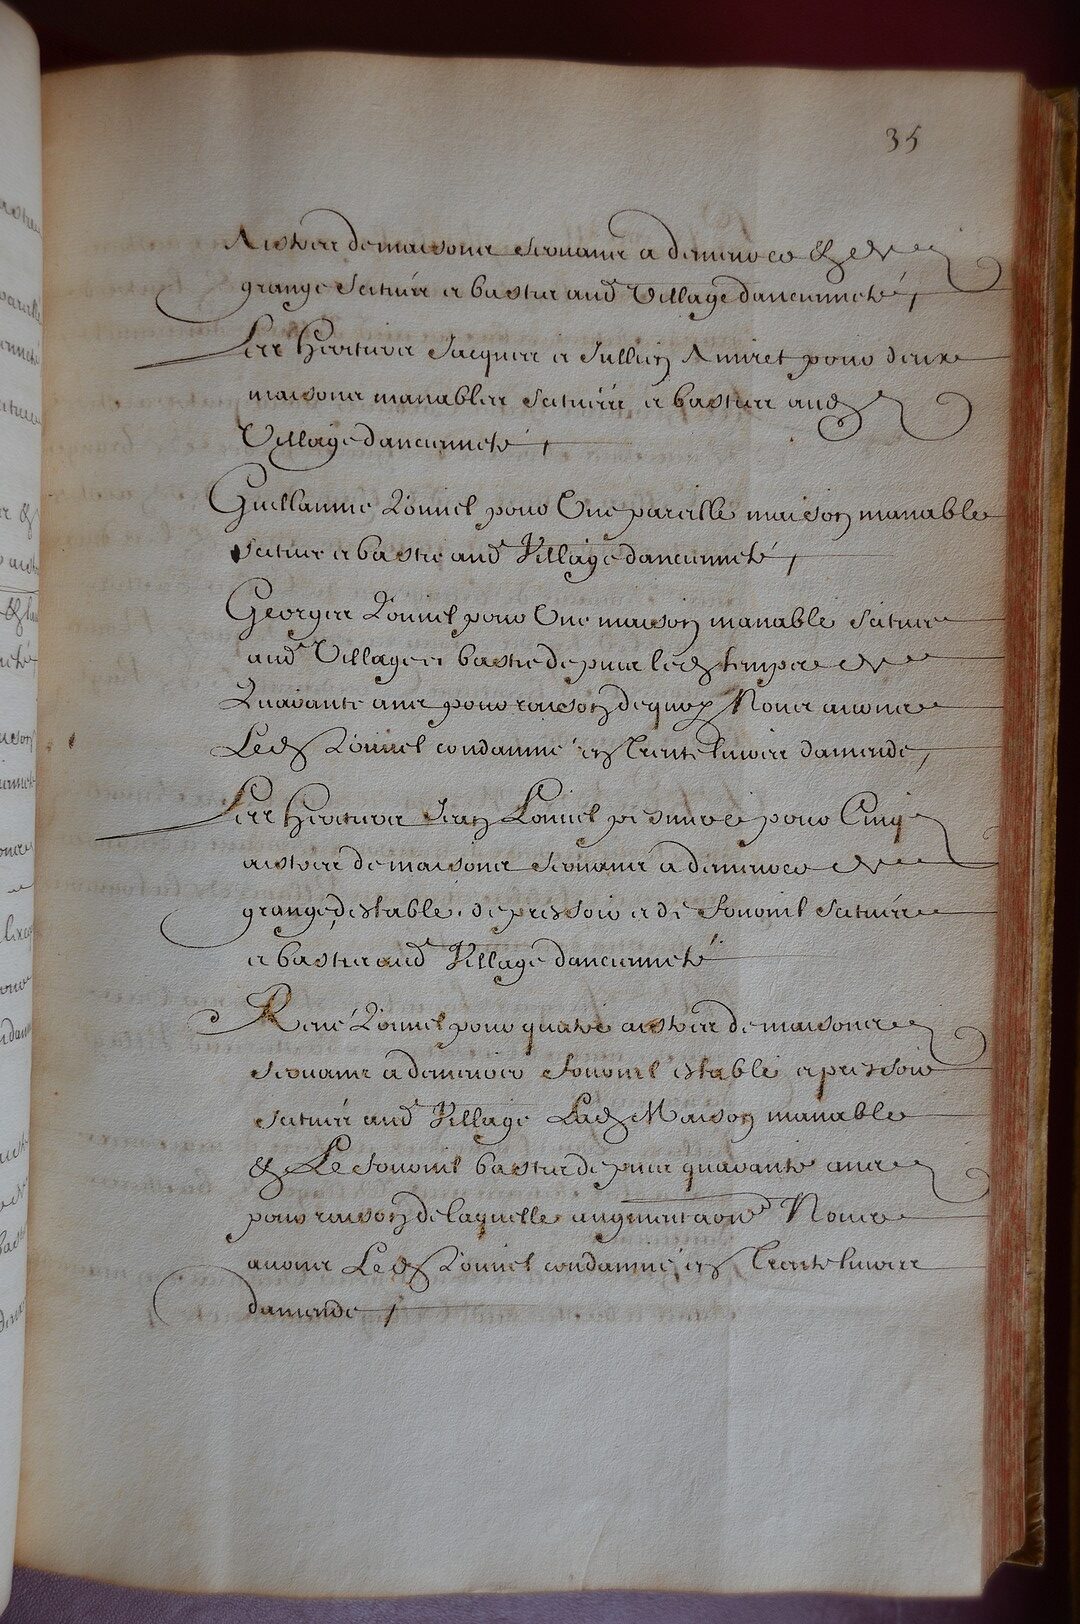 35
Aistres de maisons servans a demeures & de
grange scitués et bastis aud Village dancienneté,
Les Heritiers Jacques et Jullien Amiret pour deux
maisons manables scituéés et basties aud
Village danciennete,
Guillaume Lonnel pour Une pareille maison manable
scituee et bastie aud Village danciennete,
Georges Lonnel pour Une maison manable scituee
aud Village et bastie depuis led temps de
Quarante ans pour raison dequoy Nous avons
Led Lonnel condamné en Trente livres damende,
Les Heritiers Jean Lonnel pour Cinq
aistres de maisons servans a demeures de
grange, destable, de pressoir et de fournil scitués
et bastis aud Village danciennete
René Lonnel pour quatre aistres de maisons
servans a demeures fournil estable et pressoir
scitués aud Village Lad Maison manable
& Le fournil bastis depuis quarante ans
pour raison de laquelle augmentaon Nous
avons Led Lonnel condamné en Trente livres
damende,